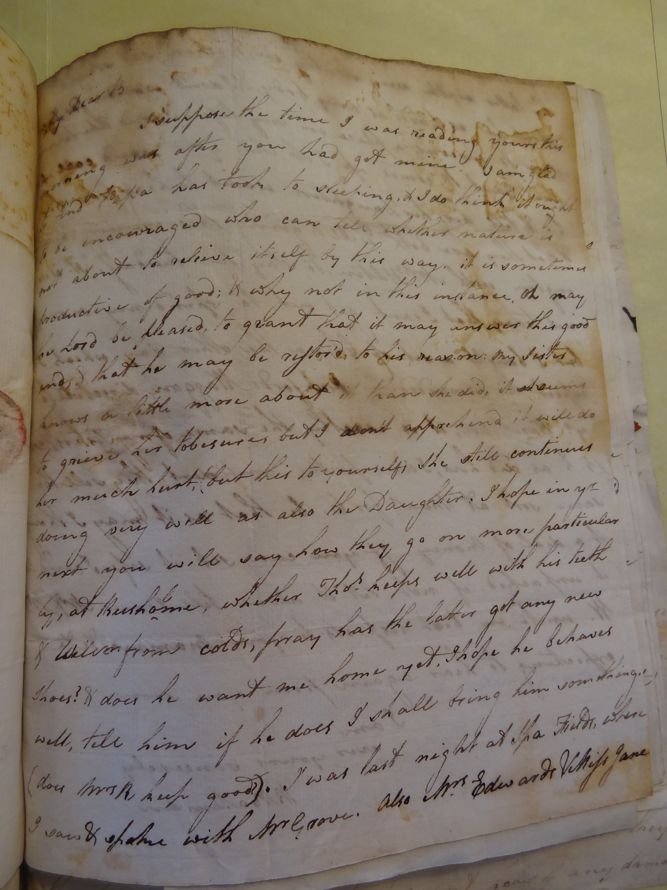 My Dear B
I suppose the time I was reading yours this
morning was after you had got mine. I am glad
to find Papa has took to sleeping, & I do think it ought
to be encouraged who can tell whether nature is
not about to relieve itself by this way. it is sometimes
productive of good; & why not in this instance. Oh may
the Lord be pleased, to grant that it may answer this good
end, & that he may be restor'd to his reason: my sister
knows a little more about it than she did, it seems
to grieve her tobesure; but I don't apprehend it will do
her much hurt, but this to yourself; She still continues
doing very well as also the Daughter. I hope in yr
next you will say how they go on more particular
ly, at Rushome, whether Thos. keeps well with his teeth
& from colds, pray has the latter got any new
shoes? & does he want me home yet, I hope he behaves
well, tell him if he does I shall bring him something.
(does Mrs K keep good). I was last night at Spa Fields, where
I saw & spoke with Mr Grove. also Mrs. Edwards & Miss Jane